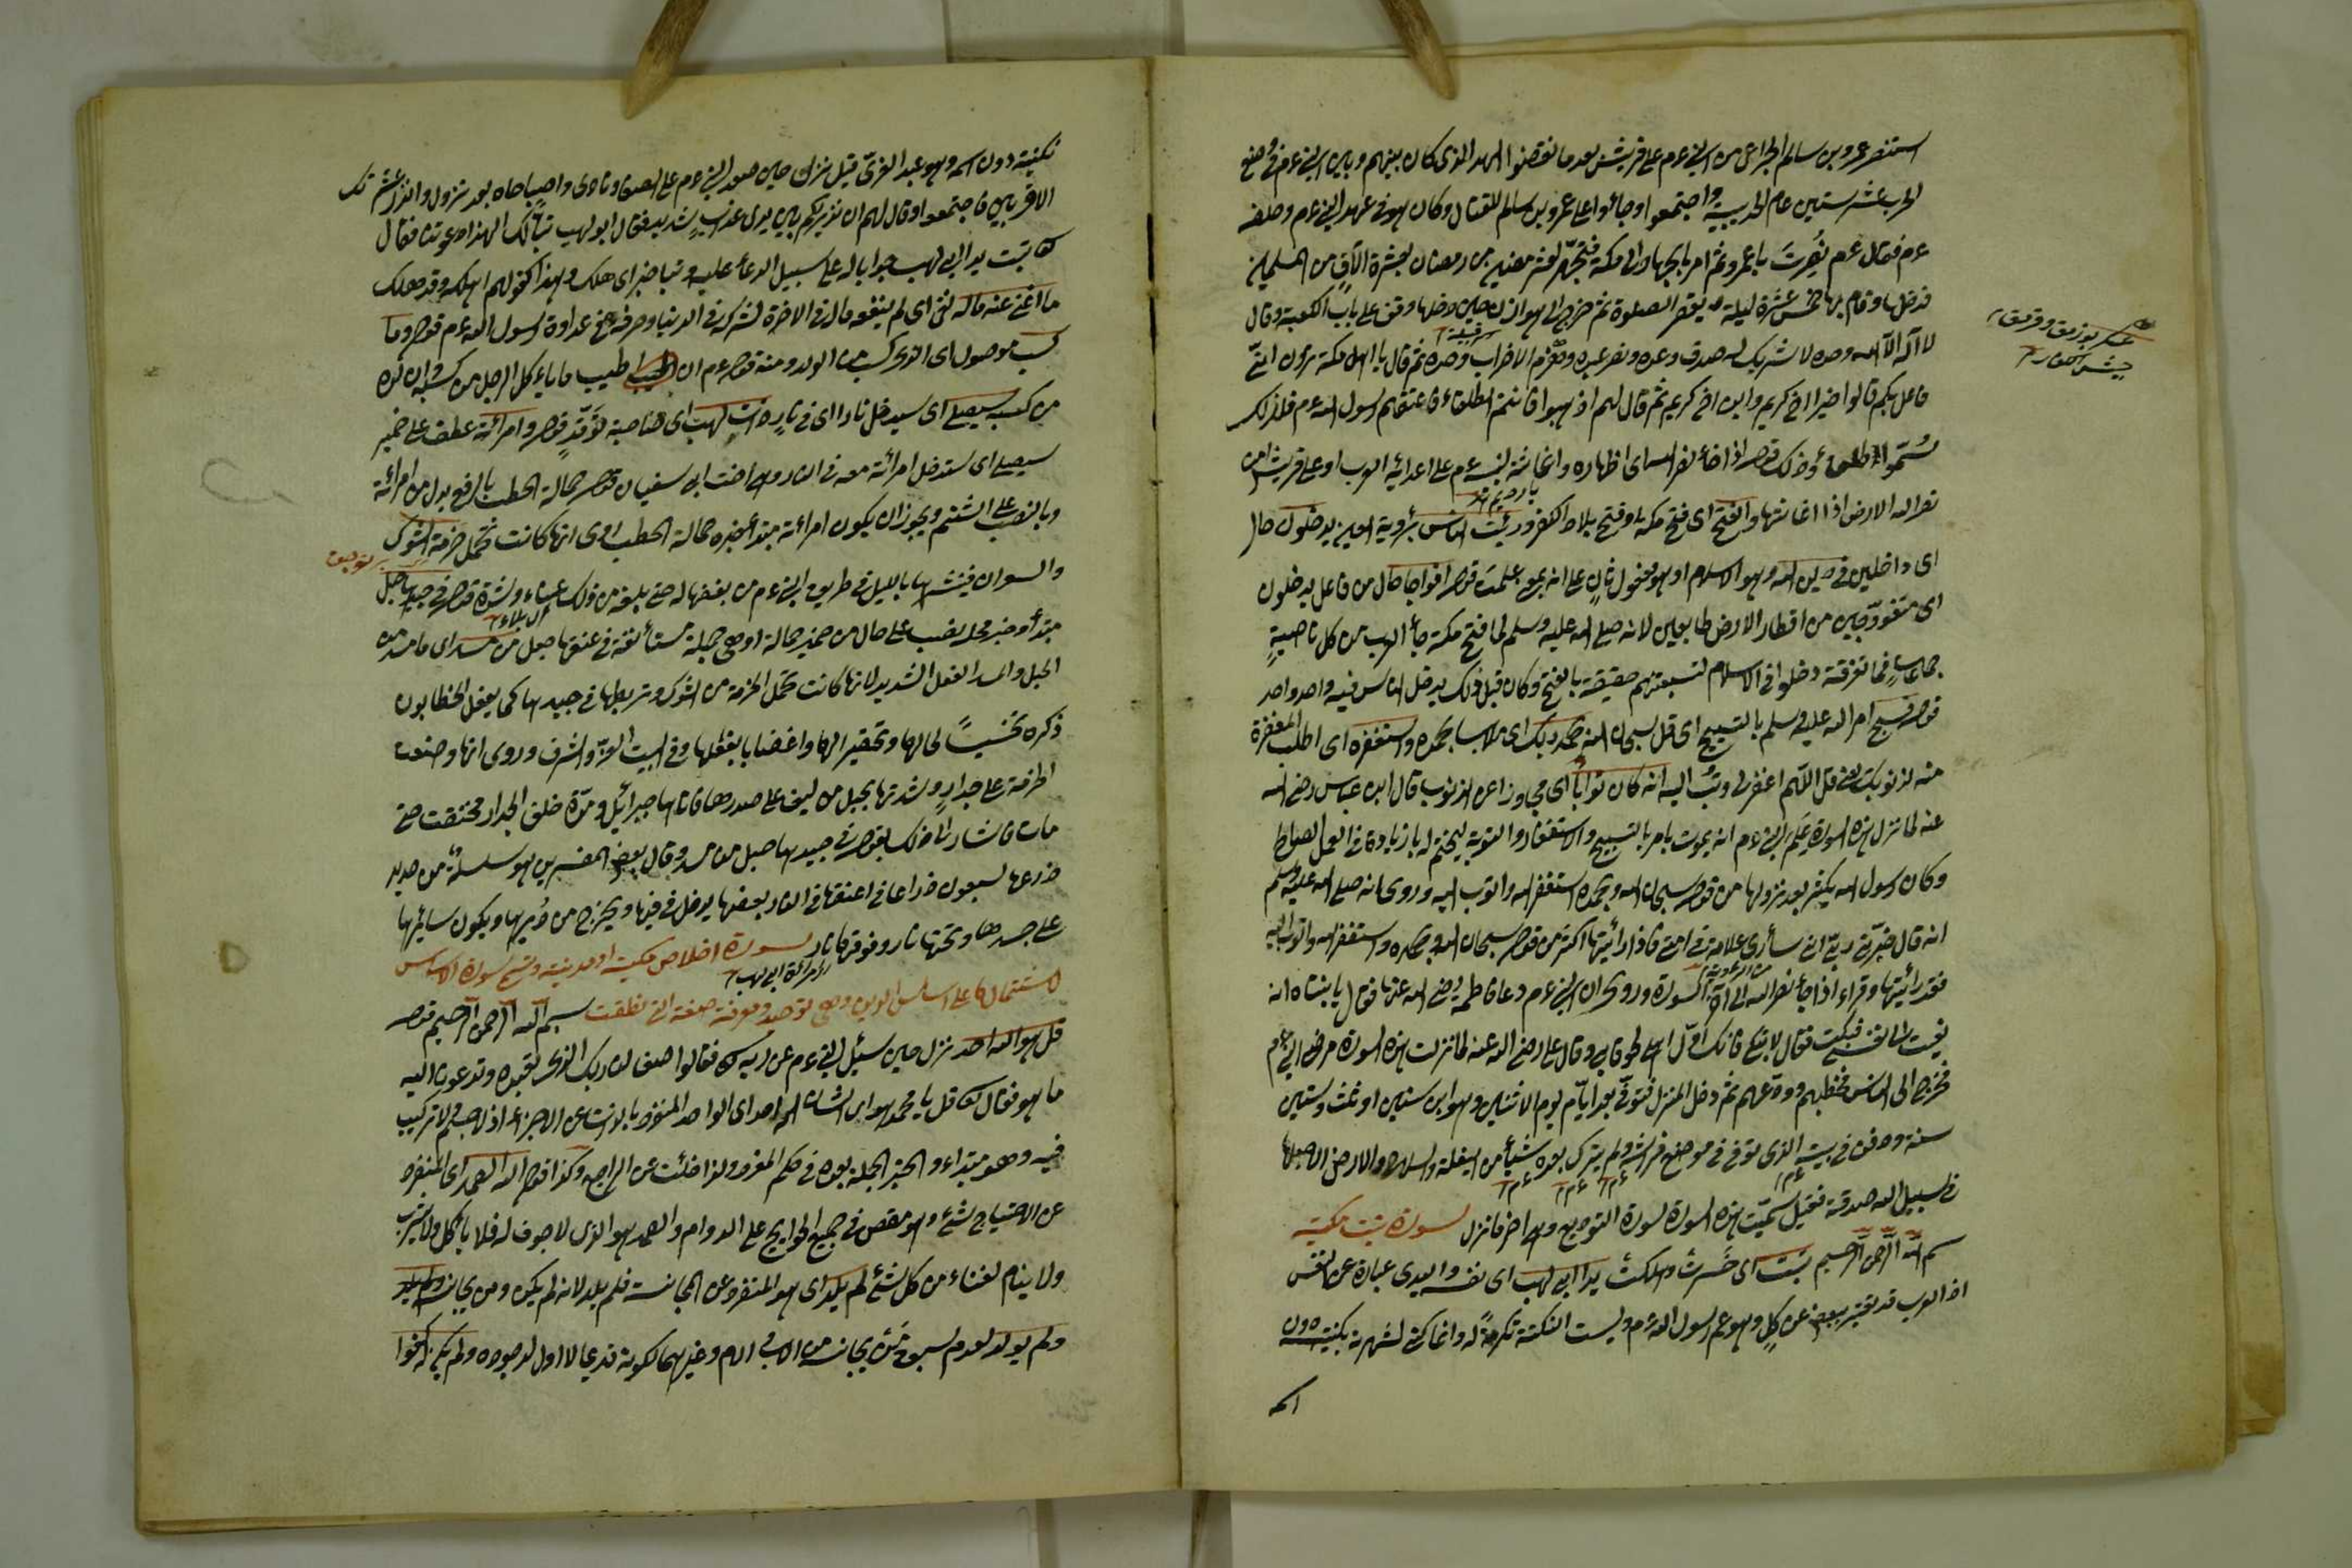 استنصر عمرو بن سالم الخزاعى من النبى عم على قريش بعد ما نقضوا العهد الذى كان بينهم وبين النبى عم فى وضع
الحرب عشر سنين عام الحديبية واجتمعوا وجاؤا على عمرو بن سالم للقتال وكان هو فى عهد النبى عم وحلفه
عم فقال عم نُصِرتَ يا عمرو ثم امر بالجهاد الى مكة فتجهّز لعشر مضين من رمضان بعشرة آلاف من المسلمين
فدخلها وقام بها خمس عشرة ليلة يقصر الصلوة ثم خرج الى هوازن حين دخلها وقف على باب الكعبة وقال
لا اله الا الله وحده لا شريك له صدق وعده ونصر عبده وهزم الاحزاب وحده ثم قال يا اهل مكة ترون انّى
فاعل بكم قالوا خيرا اخ كريم وابن اخ كريم ثم قال لهم اذهبوا فانتم الطلقاء فاعتقهم رسول الله عم فلذلك
سُمّوا الطلقاء وذلك قوله اذا جاء نصر الله اى اظهاره واغاثته لنبيه عم على اعدائه العرب او على قريش من
نصر الله الارض اذا اغاثها والفتح اى فتح مكة او فتح بلاد الكفر ورئيت الناس برؤية العين يدخلون حال
اى داخلين فى دين الله وهو الاسلام او هو مفعول ثان على انه بمعنى علمت قوله افواجا حال من فاعل يدخلون
اى متفوّجين من اقطار الارض طايعين لانه صلى الله عليه وسلم لما فتح مكة جاء العرب من كل ناحيةٍ
جماعات فما تفرقته دخلوا فى الاسلام لتسبعتهم حقيقة بالفتح وكان قبل ذلك يدخل الناس فيه واحد واحد
قوله فسبح امر الله عليه وسلم بالتسبيح اى قل سبحان الله بحمد ربك اى ملابسا بحمده واستغفره اى اطلب المغفرة
منه لذنوبك يعنى قل اللّهم اغفر لى وتب اليه انه كان توابا اى مجاوزا عن الذنوب قال ابن عباس رضى الله
عنه لما نزل هذه السورة علم النبى عم انه يموت بامر بالتسبيح والاستغفار والتوبة ليختم له بالزيادة فى العمل الصالح
وكان رسول الله يكثر بعد نزولها من قوله سبحان الله وبحمده استغفر الله واتوب اليه وروى انه صلى الله عليه وسلم
انه قال خبّرنى ربّى انى سأرى علامة فى امتى فاذا رأئيتها اكثر من قول سبحان الله وبحمده واستغفر الله واتوب اليه
فقد رأئيتها وقراء اذا جاء نصر الله الى آخر السورة وروى ان النبى عم دعا فاطمه رضى الله عنها فقال يا بنتاه انه
نعيت الى نفسى فبكت فقال لا تبكى فانك اوّل اهلى لحوقا بى وقال على رضى الله عنه لما نزلت هذه السورة مرض النبى عم
فخرج الى الناس فخطبهم وودّعهم ثم دخل المنزل فتوفّى بعد ايّام يوم الاثنين وهو ابن ستين او ثلث وستين
سنة ودفن فى بيته الذى توفى فى موضع فراشه ولم يترك بعده شيأ من بغلة والسلاح والارض الا جعلها
فى سبيل الله صدقة فقيل سمّيت هذه السورة سورة التوديع وهى آخر ما نزل سورة تبت مكية
بسم الله الرحمن الرحيم تبت اى خسرت وهلكت يدا ابى لهب اى نفسه واليدى عبارة عن النفس
اذ العرب قد تعبّر ببعض عن كلٍ وهو عم رسول الله عم وليست الكنية تكرمةً له وانما كنى لشهرته بكنيته دون
اسمه
عسكر
جيش كفار
تكنيته دون اسمه وهو عبد العزّى قيل نزلت حين صعد النبى عم على الصفا ونادى واصباحاه بعد نزول وانذر عشيرتك
الاقربين فاجتمعوا وقال لهم انى نذيركم بين يدى عذاب شديد فقال ابو لهب تبا لك الهذا دعوتنا فقال
تبت يدا ابى لهب جوابا له على سبيل الدعاء عليه وتب خبر اى هلك وهذا كقولهم اهلكه وقد هلك
ما اغنى عنه ماله نفى اى لم ينفعه ماله فى الآخرة لشركه فى الدنيا وصرفه فى عداوة رسول الله عم قوله وما
كسب موصول اى الذى كسب من الولد ومنه قوله عم ان اطيب ما ياءكل الرجل من كسبه وان ولده
من كسبه سيصلى اى سيدخل نارا اى فى نار ذات لهب اى صاحبة توقّدٍ قوله وامرائته عطف على ضمير
سيصلى اى ستدخل امرائته معه فى النار وهى اخت ابى سفيان قوله حمالة الحطب بالرفع بدل من امرائة
وبالنصب على الشتم ويجوز ان يكون امراءته مبتداء خبره حمالة الحطب روى انها كانت تحمل حزمة الشوك
والسعدان فينشرها بالليل فى طريق النبى عم من بغضها له حتى بلغ من ذلك عناء وشدة قوله فى جيدها حبل
مبتدأ وخبر محله نصب على حال من ضمير حمالة او هى جملة مستأنفة فى عنقها حبل من مسد اى ما مسد من
الحبل والمسد الفتل الشديد لانها كانت تحمل الحزمة من الشوك وتربطها فى جيدها كما يفعل الحطابون
ذكره تخسيسًا لحالها وتحقيرا لها واغضابا بفعلها وفى البيت العزّ والشرف وروى انها وضعت
الحزمة على جدارٍ وشدتها بحبل من ليف على صدرها فاتاها جبرائيل ومدّه خلف الجدار فخنقت حتى
ماتت فاشار الى ذلك بقوله فى جيدها حبل من مسد وقال بعض المفسرين هو سلسلة من حديد
ذرعها سبعون ذراعا فى اعنقها فى النار بعضها يدخل فى فيها ويخرج من دُبرها ويكون سائرها
على جسدها وتحتها نار وفوقها نار سورة اخلاص مكية او مدنية وتسمى سورة الاساس
لاشتمالها على اساس الدين وهى توحيد ومعرفة صفة التى نطقت بسم الله الرحمن الرحيم قوله
قل هو الله احد نزل حين سئل النبى عم عن ربه فقالوا صف لنا ربك الذى تعبده وتدعونا اليه
ما هو فقال قل يا محمد هو اى الشان الله احد اى الواحد المنفرد بالذات عن الاجزاء اذ لا جسم ولا تركيب
فيه وهو مبتداء والخبر الجملة بعده فى حكم المفرد ولذا خلت عن الراجع وكذا قوله الله الصمد اى المنفرد
عن الاحتياج لشئ وهو مقصد فى جميع الحوايج على الدوام والصمد هو الذى لا جوف له فلا ياكل ولا يشرب
ولا ينام لغناءه من كل شئ لم يلد اى هو المنفرد عن المجانسة فلم يلد لانه لم يكن ومن يجانسه ولم يلد
ولم يولد لعدم سبوق شئ يجانسه من الاب والام وغيرهما لكونه قديما لا اول لوجوده ولم يكن له كفوا